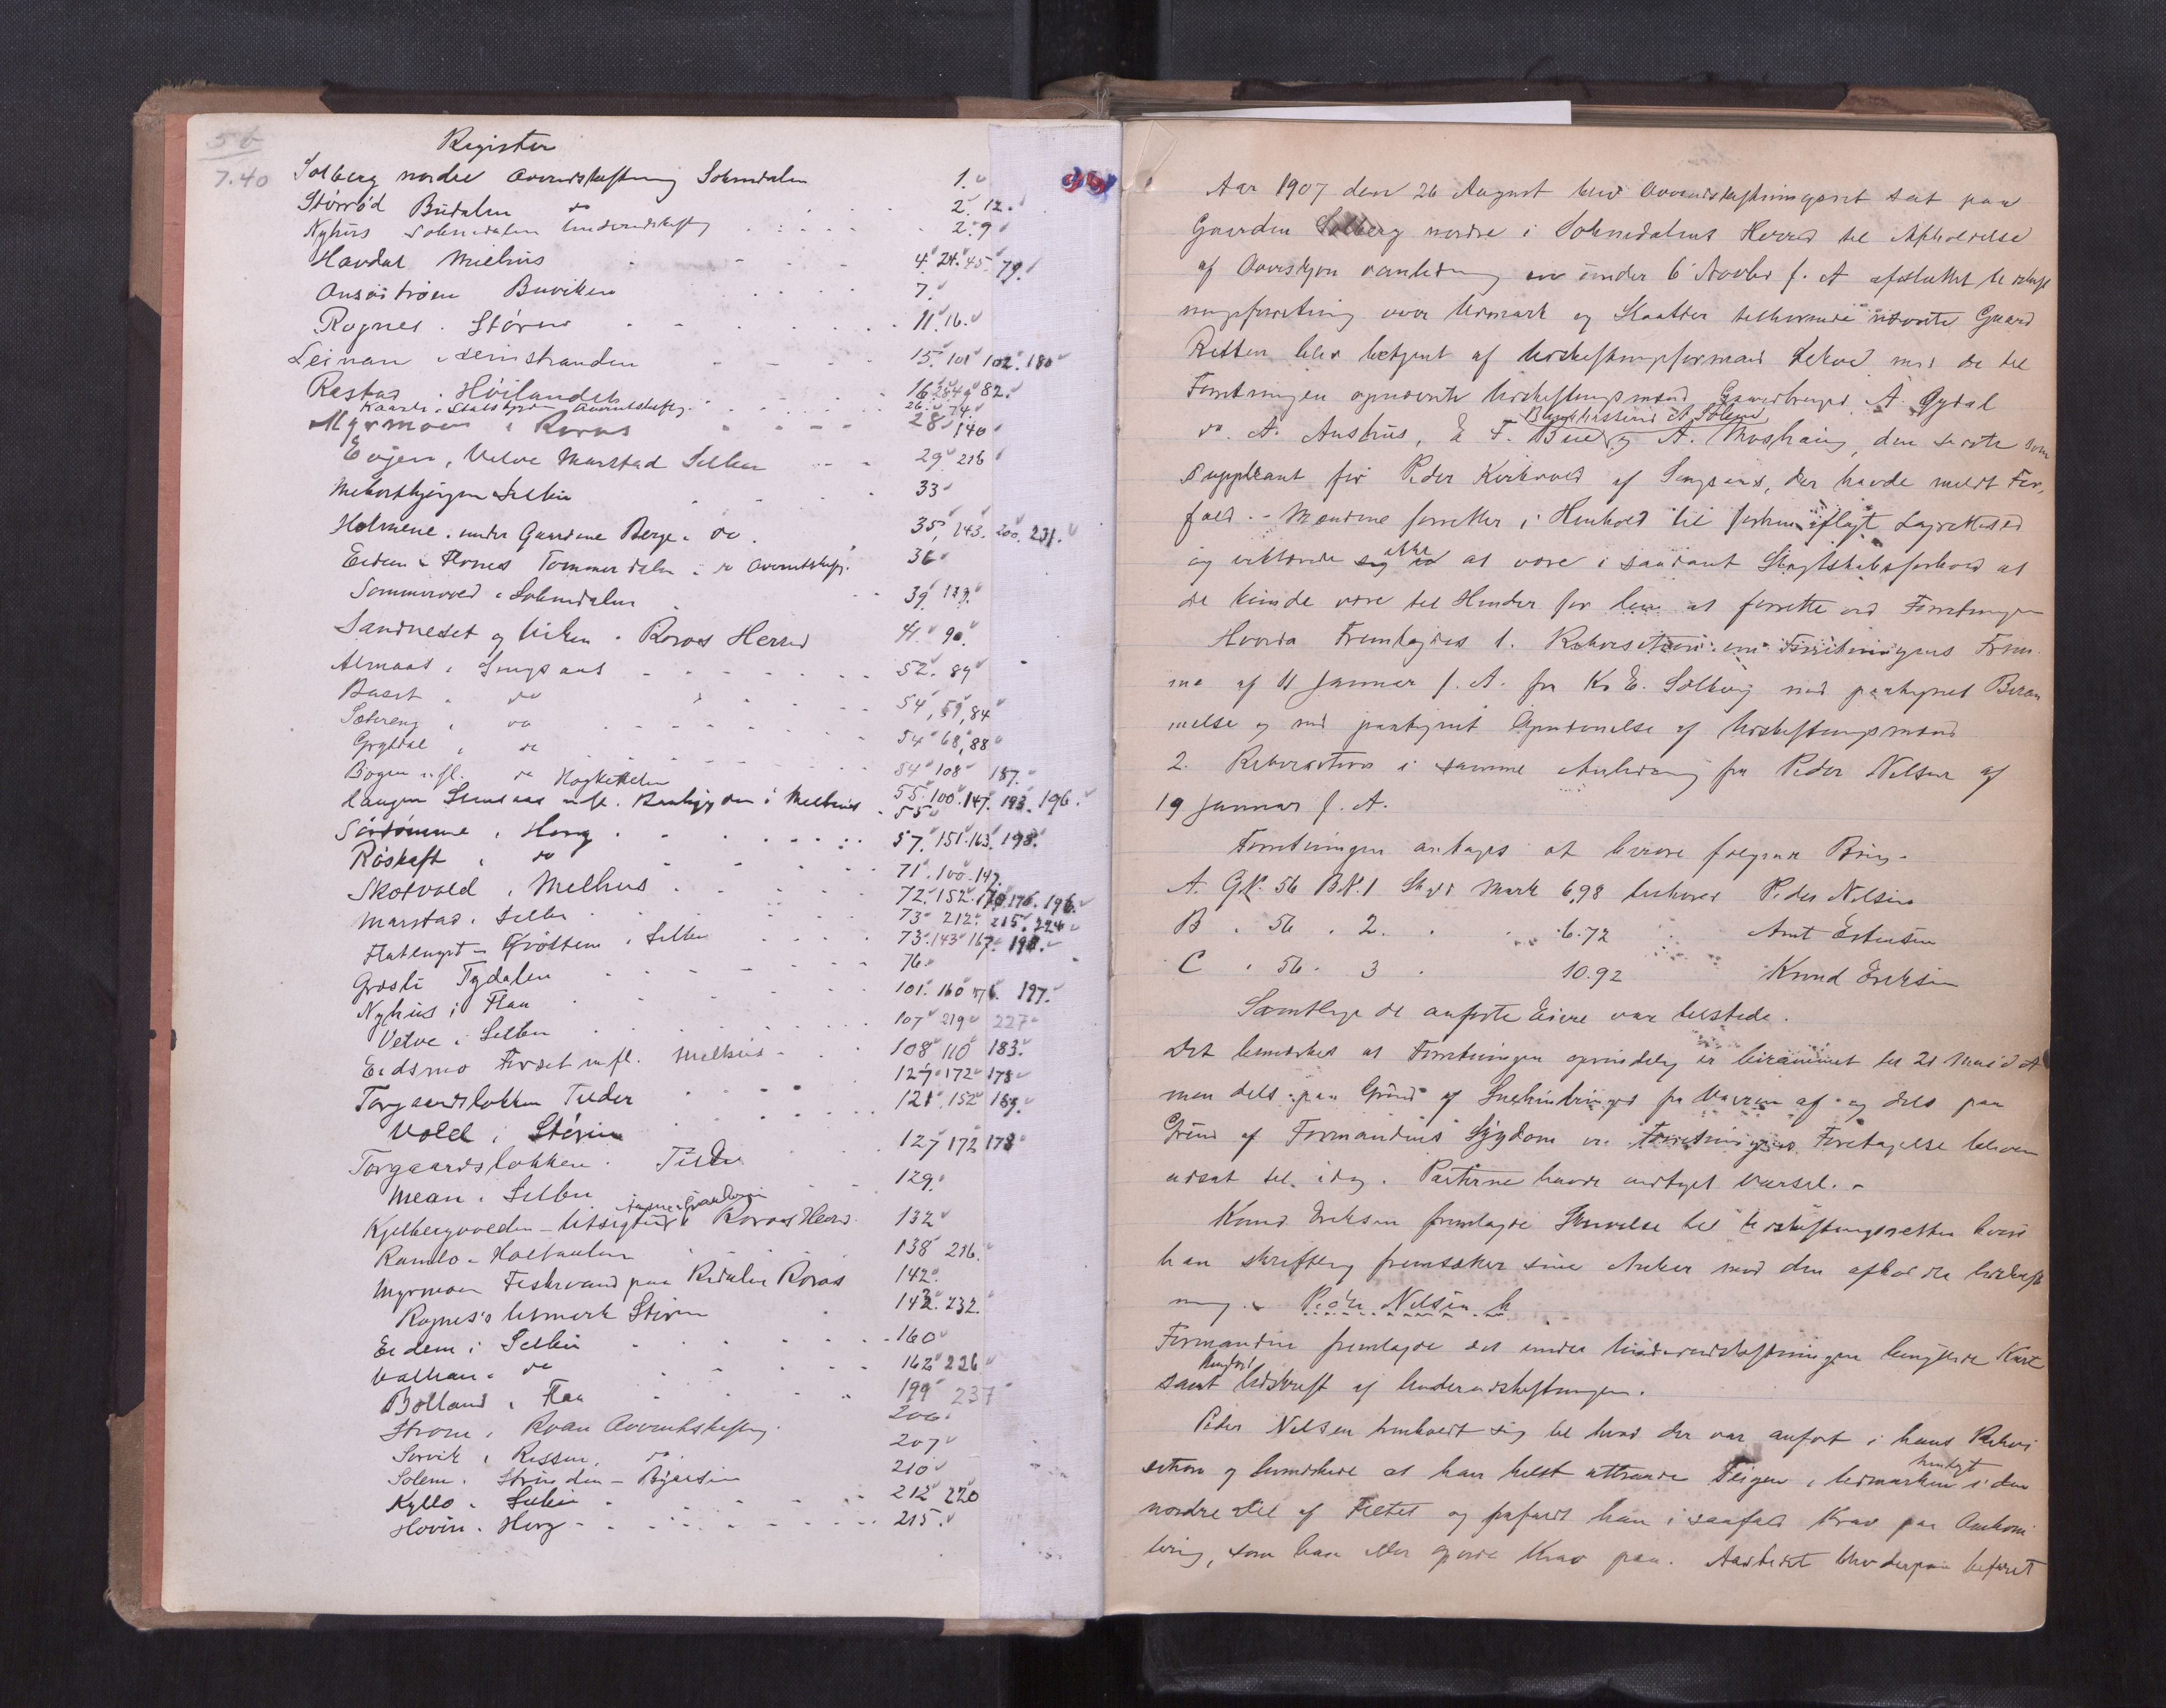 56
7.40
Register
Solberg nordre Overudskiftning Soknedalen 1.
Størrød Budalen do 2. 12.
Nyhus Soknedalen Underudskiftg 2. 9
Havdal Melhus 4. 24. 45. 79.
Ansøistrøen Buviken 7.
Rognes. Støren 11. 16.
Leinan i Leinstranden 15. 101 102. 180
Rastad. Høilandet 16. 38. 49 82.
Kaarli i Stadsbygden Overudskiftg. 26. 74.
Myrmoen i Røros 28 140
Evjen, Velve Marstad Selbu 29 216
Selbu 33
Holmene. under Gaardene Berge. do. 35, 143. 200. 231.
Eidem & Flønes Tømmerdalen i do Overutskiftg. 36
Sommervold i Soknedalen 39. 129.
Sandneset og Viken. Røros Herred 41. 90.
Almaas i Singsaas 52. 89
Buset. do 54, 59, 84
Sætereng, do 54 68, 88
Grytdal, do 54 108 187.
Bogen m.fl. do Hogkettelen 55. 100. 147. 193. 196.
Langen m.fl. i Melhus 55
Sørtømme, Horg 57. 151. 163. 198.
Røskaft, do 71. 100. 147.
Skotvold, Melhus 72. 152. 170. 176. 196.
Marstad. Selbu 73 212. 215. 224
Kjøsteen i Selbu 73. 143 167. 190.
Græsli Tydalen 76.
Nyhus i Flaa 101. 160 176. 197.
Velve i Selbu 107 219 227
Eidsmo Fordset m.fl. Melhus 108 110 183.
Torgaardsløkken Tiller 127 172 178
Vold i Støren 121. 152 169.
Torgaardsløkken. Tiller 127 172 178
Mean. Selbu 129.
Kjelbergvolden - Røros Herred 132
Ramlo - Holtaalen 138 216.
Myrmoen Fiskevand paa Røros 142.
Rognes's utmark Støren 142. 232.
Eidem i Selbu 160
do 162 226
Bolland i Flaa 199 237
Strøm, Roan Overutskiftng. 206.
Sørvik i Rissen. do 207
Solem. Strinden - 210
Kyllo. Selbu 212 220
Hovin. Horg 215.
Aar 1907 den 26 August blev Overudskiftningsret sat paa
Gaarden Solberg nordre i Soknedalens Herred til Afholdelse
af Overskjøn en under 6 Novbr f. A afsluttet Udskift
ningsforretning over Udmark og Skatter tilhørende nævnte Gaard
Retten blev betjent af Udskiftningsformand med de til
Forretningen opnævnte Udskiftningsmænd Gaardbruger A. Gydal
do. A. Aushus, E. F. Bue og A. Moshaug, den sidste som
A Solem
suppleant for Peder Kirkvold af Singsaas, der havde meldt For,
fald. - Mændene forretter i Henhold til aflagt Lagretteed
og erklærede sig ikke at være i saadant Slægtskabsforhold at
de kunde være til Hinder for at forrette ved Forretningen
Hvorda Fremlagdes 1. Rekvisition om Forretningens Frem
me af 11 Januar f. A. fra K. E. Solberg med paategnet Beram
melse og med paategnet Opnævnelse af Udskiftningsmænd
2. Rekvisition i samme Anledning fra Peder Nilsen af
19 Januar f. A.
Forretningen antages at berøre følgende Brug.
A. GN. 56 BN. 1 Skyld Mark 6,98 tilhører Peder Nilsen
B. 56. 2. 6.72 Arnt Estensen
C. 56. 3 10.92 Knud Eriksen
Samtlige de anførte Eiere var tilstede.
Det bemærkes at Forretningen oprindelig er berammet til 21 Mai d A
men dels paa Grund af Snehindringer fra Vaaren af og dels paa
Grund af Formandens Sygdom er Forretningens Foretagelse bleven
udsat til idag. Parterne havde vedtaget Varsel. -
Knud Eriksen fremlagde Skrivelse til Udskiftningsretten hvori
han skriftlig fremsætter sine Anker mod den afholdte Udskift
ning. - Peder Nilsen h
Formanden fremlagde det under Underudskiftningen benyttede Kart
samt Udskrift af Underudskiftningen.
Peder Nilsen henholdt sig til hvad der var anført i hans Rekvi
sition og bemærkede at han helst attraaede Teigen i Udmarken i den
nordre Del af Feltet og frafaldt han i saafald Krav paa
som han eller gjorde Krav paa. Arbeidet blev derpaa befaret